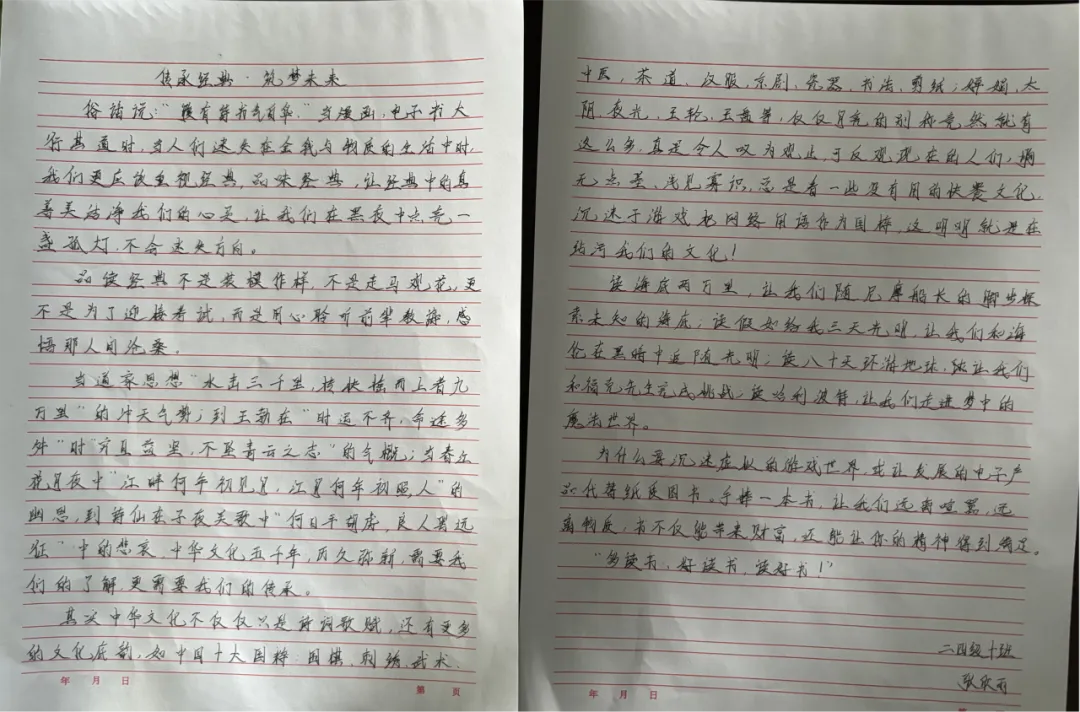 传承经典·筑梦未来
俗话说:“腹有诗书气自华。”当漫画,电子书大
行其道时,当人们迷失在金钱与物质的生活中时,
我们更应该重视经典,品味经典,让经典中的真
善美洁净我们的心灵,让我们在黑夜中点亮一
盏孤灯,不会迷失方向。
品读经典不是装模作样,不是走马观花,更
不是为了迎接考试,而是用心聆听前辈教诲,感
悟那人间沧桑。
当道家思想“水击三千里,抟扶摇而上者九
万里”的冲天气势;到王勃在“时运不齐,命途多
舛”时“穷且益坚,不坠青云之志”的气概;当春江
花月夜中“江畔何年初见月,江月何年初照人”的
幽思,到诗仙在子夜吴歌中“何日平胡虏,良人罢远
征”中的悲哀。中华文化五千年,历久弥新,需要我
们的了解,更需要我们的传承。
其实中华文化不仅仅只是诗词歌赋,还有更多
的文化底蕴,如中国十大国粹:围棋,刺绣,武术,
中医,茶道,汉服,京剧,瓷器,书法,剪纸;婵娟,太
阴,夜光,玉轮,玉盘等,仅仅月亮的别称竟然就有
这么多,真是令人叹为观止,可反观现在的人们,胸
无点墨、浅见寡识,总是看一些没有用的快餐文化,
沉迷于游戏把网络用语作为国粹,这明明就是在
玷污我们的文化!
读海底两万里,让我们随尼摩船长的脚步探
索未知的海底;读假如给我三天光明,让我们和海
伦在黑暗中追随光明;读八十天环游地球,能让我们
和福克先生完成挑战;读哈利波特,让我们走进梦中的
魔法世界。
为什么要沉迷虚拟的游戏世界,或让发展的电子产
品代替纸质图书。手捧一本书,让我们远离喧嚣,远
离物质,书不仅能带来财富,还能让你的精神得到满足。
“多读书,好读书,读好书!”
二四级十班
张欣雨
年 月 日
第 页
年 月 日